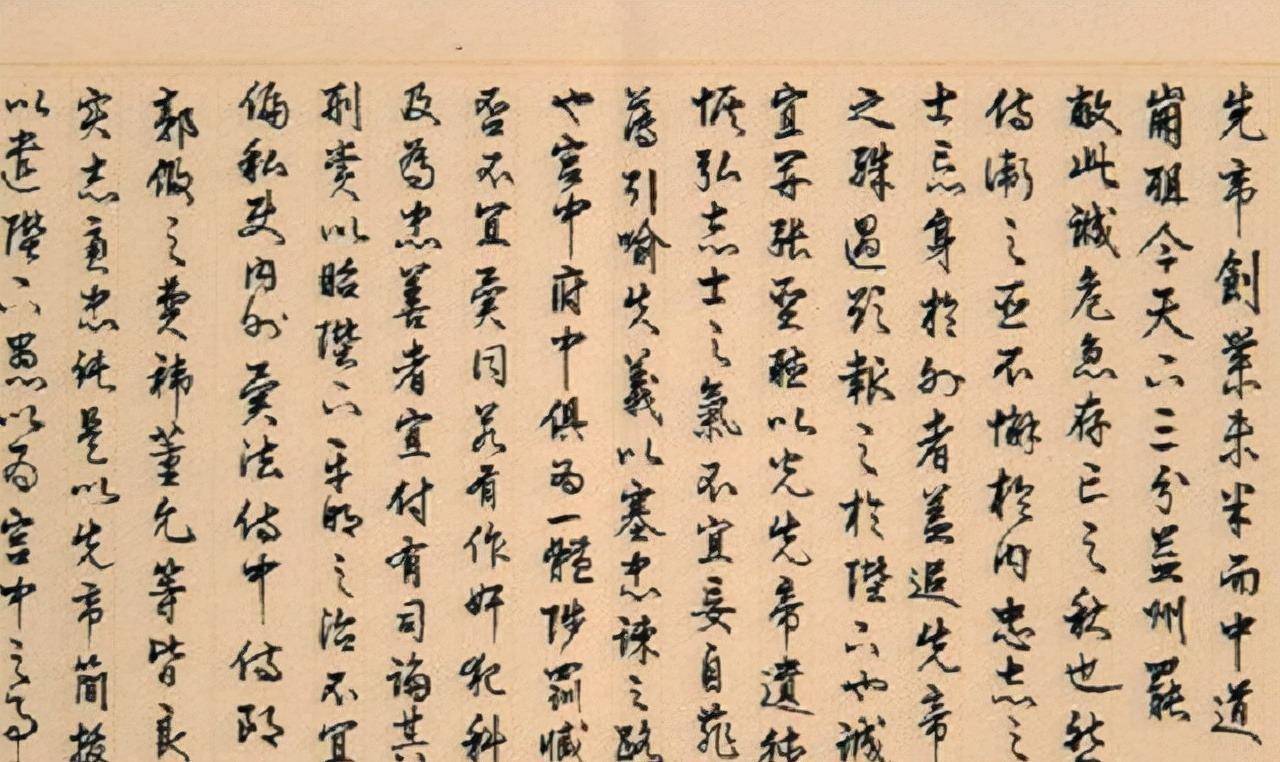 先帝創業未半而中道
崩殂今天下三分益州罷
敝此誠危急存亡之秋也然
侍衛之臣不懈於内忠志之
士忘身於外者蓋追先帝
之殊遇欲報之於陛下也誠
宜開張聖聽以光先帝遺德
恢弘志士之氣不宜妄自菲
薄引喻失義以塞忠諫之路
也宮中府中俱為一體陟罰臧
否不宜異同若有作奸犯科
及為忠善者宜付有司論其
刑賞以昭陛下平明之治不宜
偏私使内外異法侍中侍郎
郭攸之費禕董允等皆良
實志慮忠純是以先帝簡拔
以遺陛下愚以為宮中之事